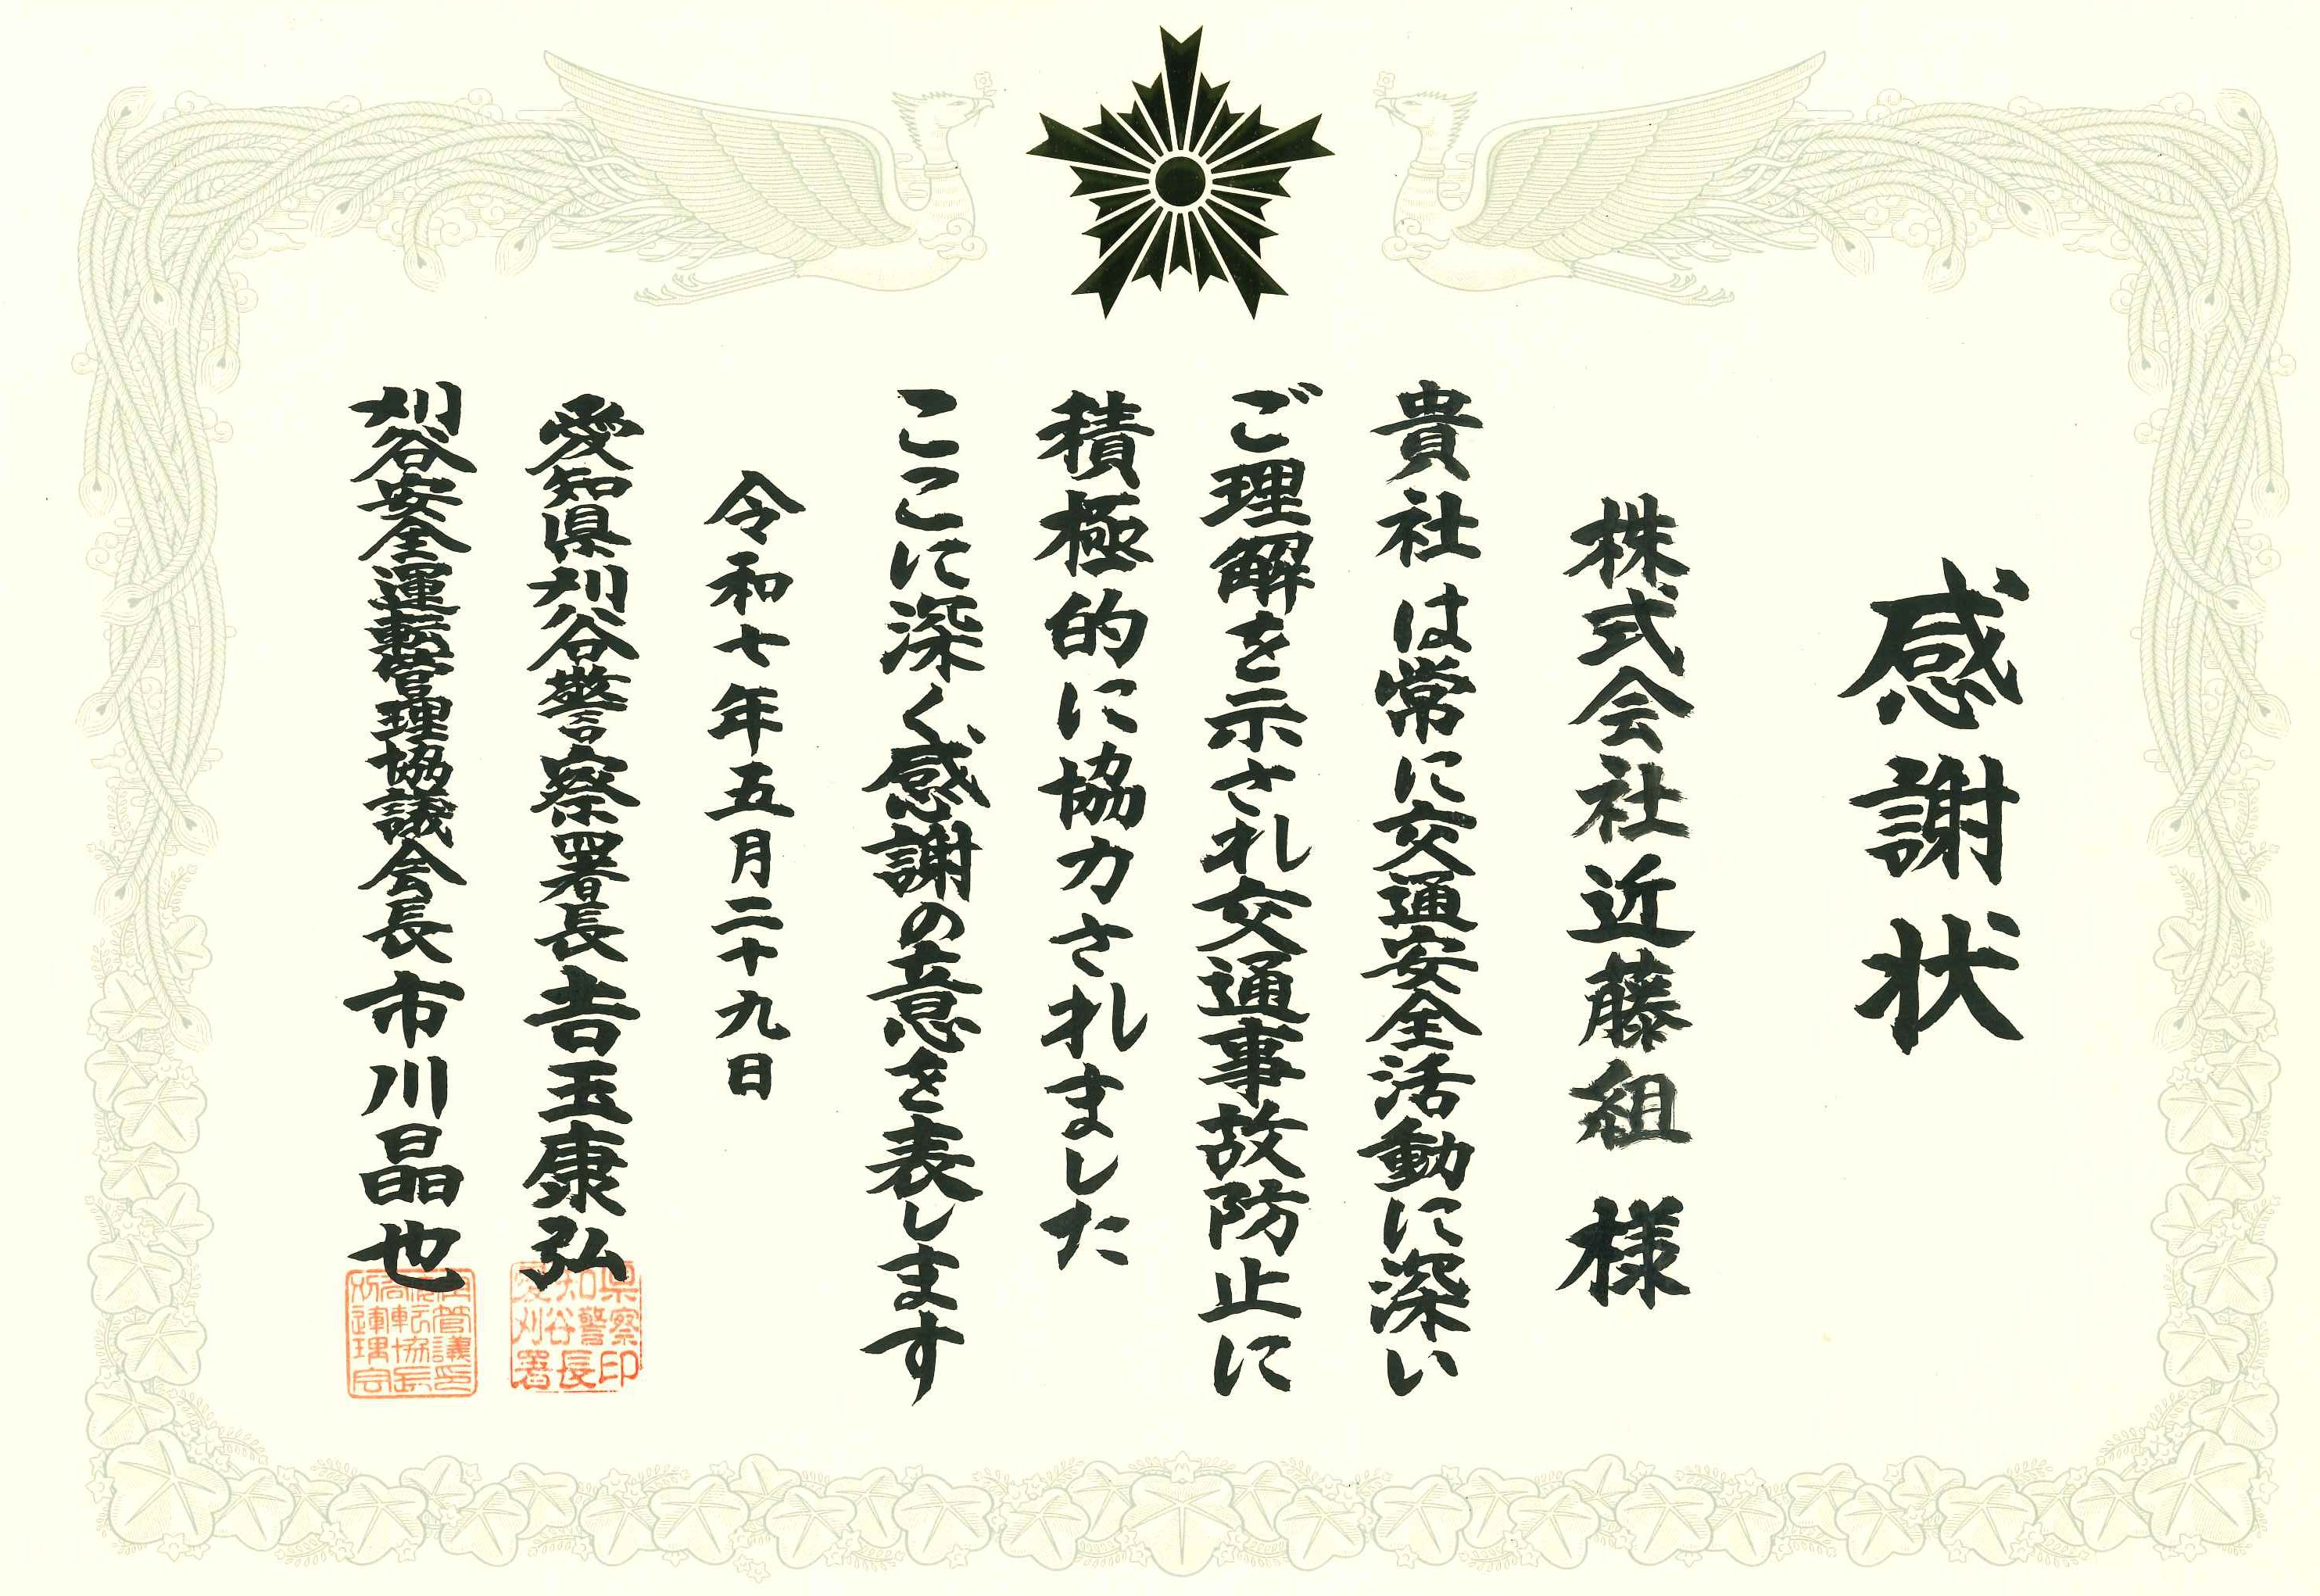 感謝状
株式会社近藤組 様
貴社は常に交通安全活動に深い
ご理解を示され交通事故防止に
積極的に協力されました
ここに深く感謝の意を表します
令和七年五月二十九日
愛知県刈谷警察署長 吉玉康弘
刈谷安全運転管理協議会長 市川晶也
愛知県
刈谷警察
署長印